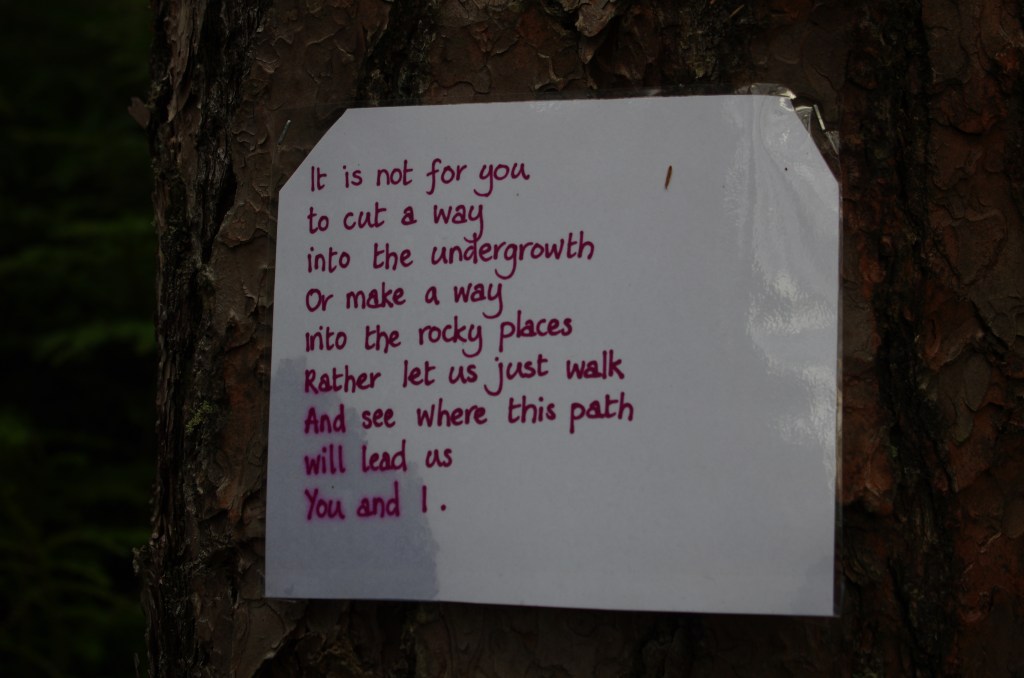 It is not for you
to cut a way
into the undergrowth
Or make a way
into the rocky places
Rather let us just walk
And see where this path
will lead us
You and I.